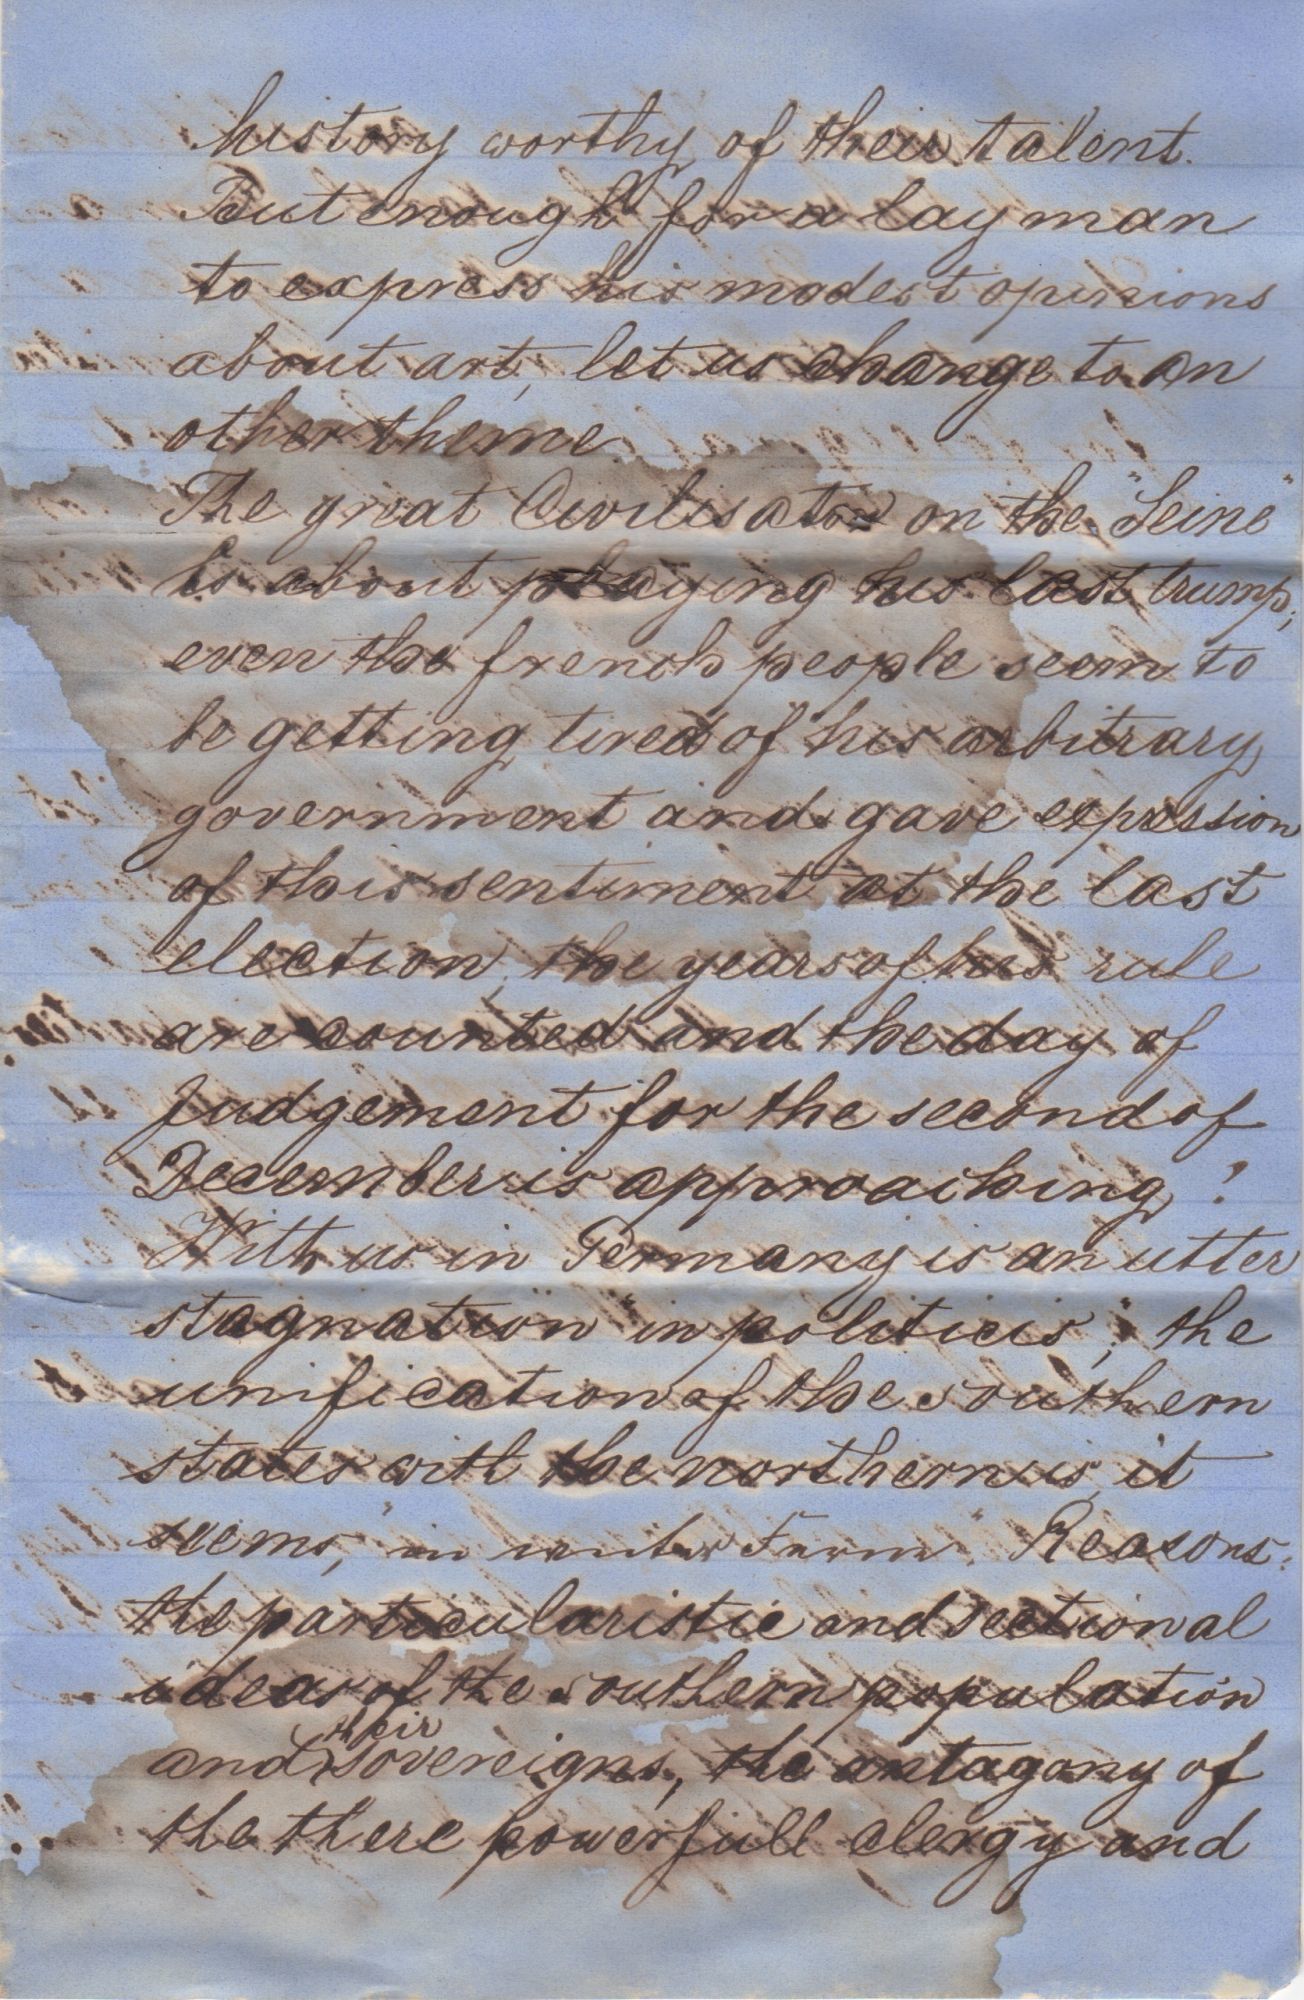 history worthy of their talent.
But enough for a layman
to express his modest opinions
about art, let us change to an
other theme.
The great Civilisator on the "Seine"
is about playing his last trump;
even the french people seem to
be getting tired of his arbitrary
government and gave expression
of this sentiment at the last
election, the years of his rule
are counted and the day of
Judgement for the second of
December is approaching!
With us in Germany is an utter
stagnation "in politicis", the
unification of the southern
states with the northern is, it
seems, "in weiter Ferne". Reasons:
the particularistic and sectional
ideas of the southern population
and their sovereigns, the antagony of
the there powerfull clergy and